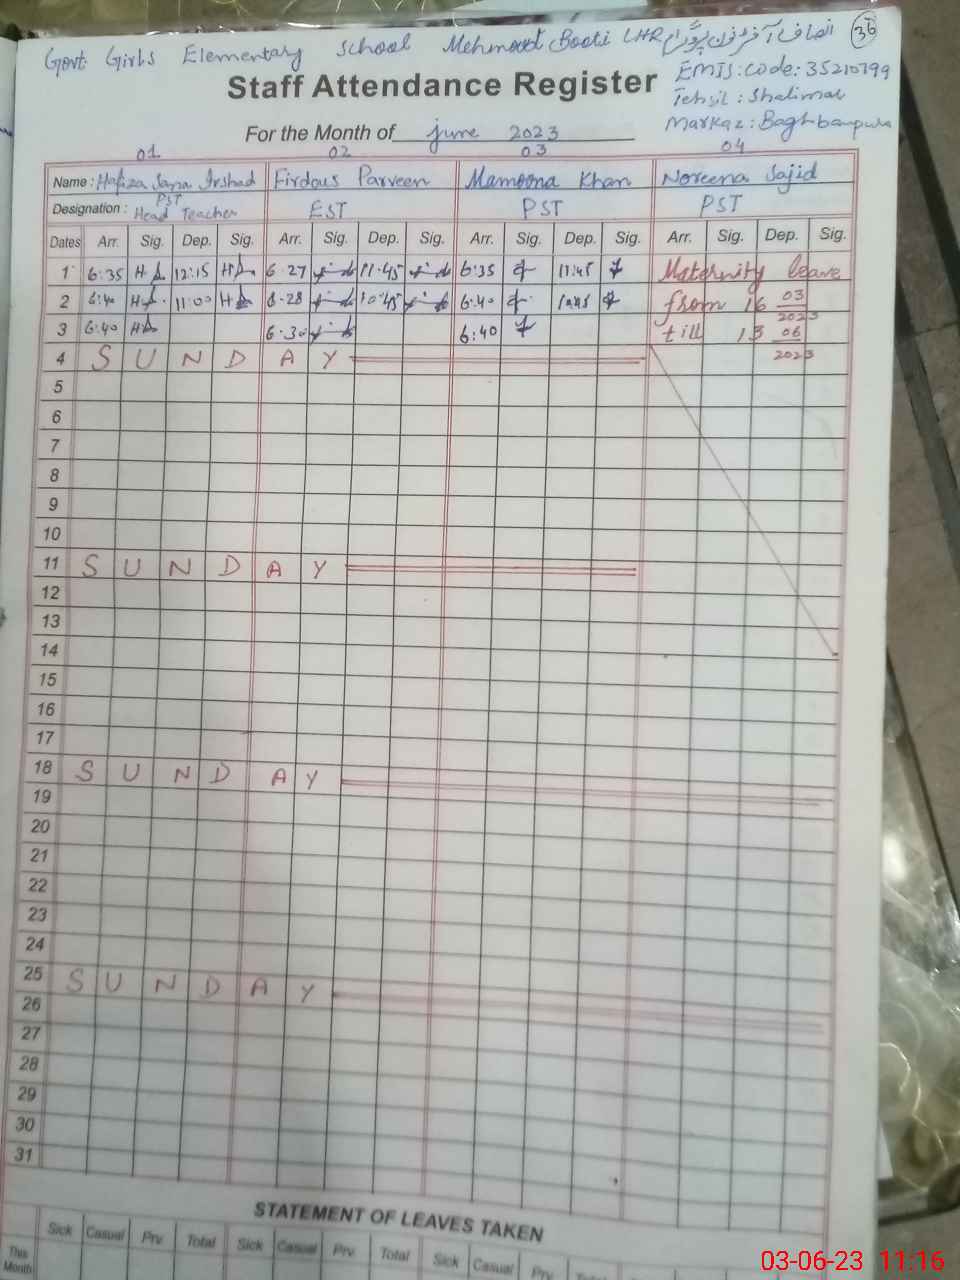 Govt Girls Elementary School Mehmood Booti LHR انصاف آفٹرنون پروگرام 36
Staff Attendance Register
EMIS: Code: 35210799
Tehsil : Shalimar
Markaz : Baghbanpura
For the Month of june 2023
01 02 03 04
Name : Hafiza Sana Irshad Firdous Parveen Mamoona Khan Noreena Sajid
Designation : PST Head Teacher EST PST PST
Dates Arr. Sig. Dep. Sig. Arr. Sig. Dep. Sig. Arr. Sig. Dep. Sig. Arr. Sig. Dep. Sig.
1 6:35 12:15 6·27 11:45 6:35 11:45 Maternity leave
2 6:40 11:00 6·28 10:45 6:40 from 16 03 2023
3 6:40 6·30 6:40 till 13 06 2023
4 S U N D A Y
5
6
7
8
9
10
11 S U N D A Y
12
13
14
15
16
17
18 S U N D A Y
19
20
21
22
23
24
25 S U N D A Y
26
27
28
29
30
31
STATEMENT OF LEAVES TAKEN
Sick Casual Prv. Total Sick Casual Prv. Total Sick Casual Prv. Total Sick
This Month
03-06-23 11:16